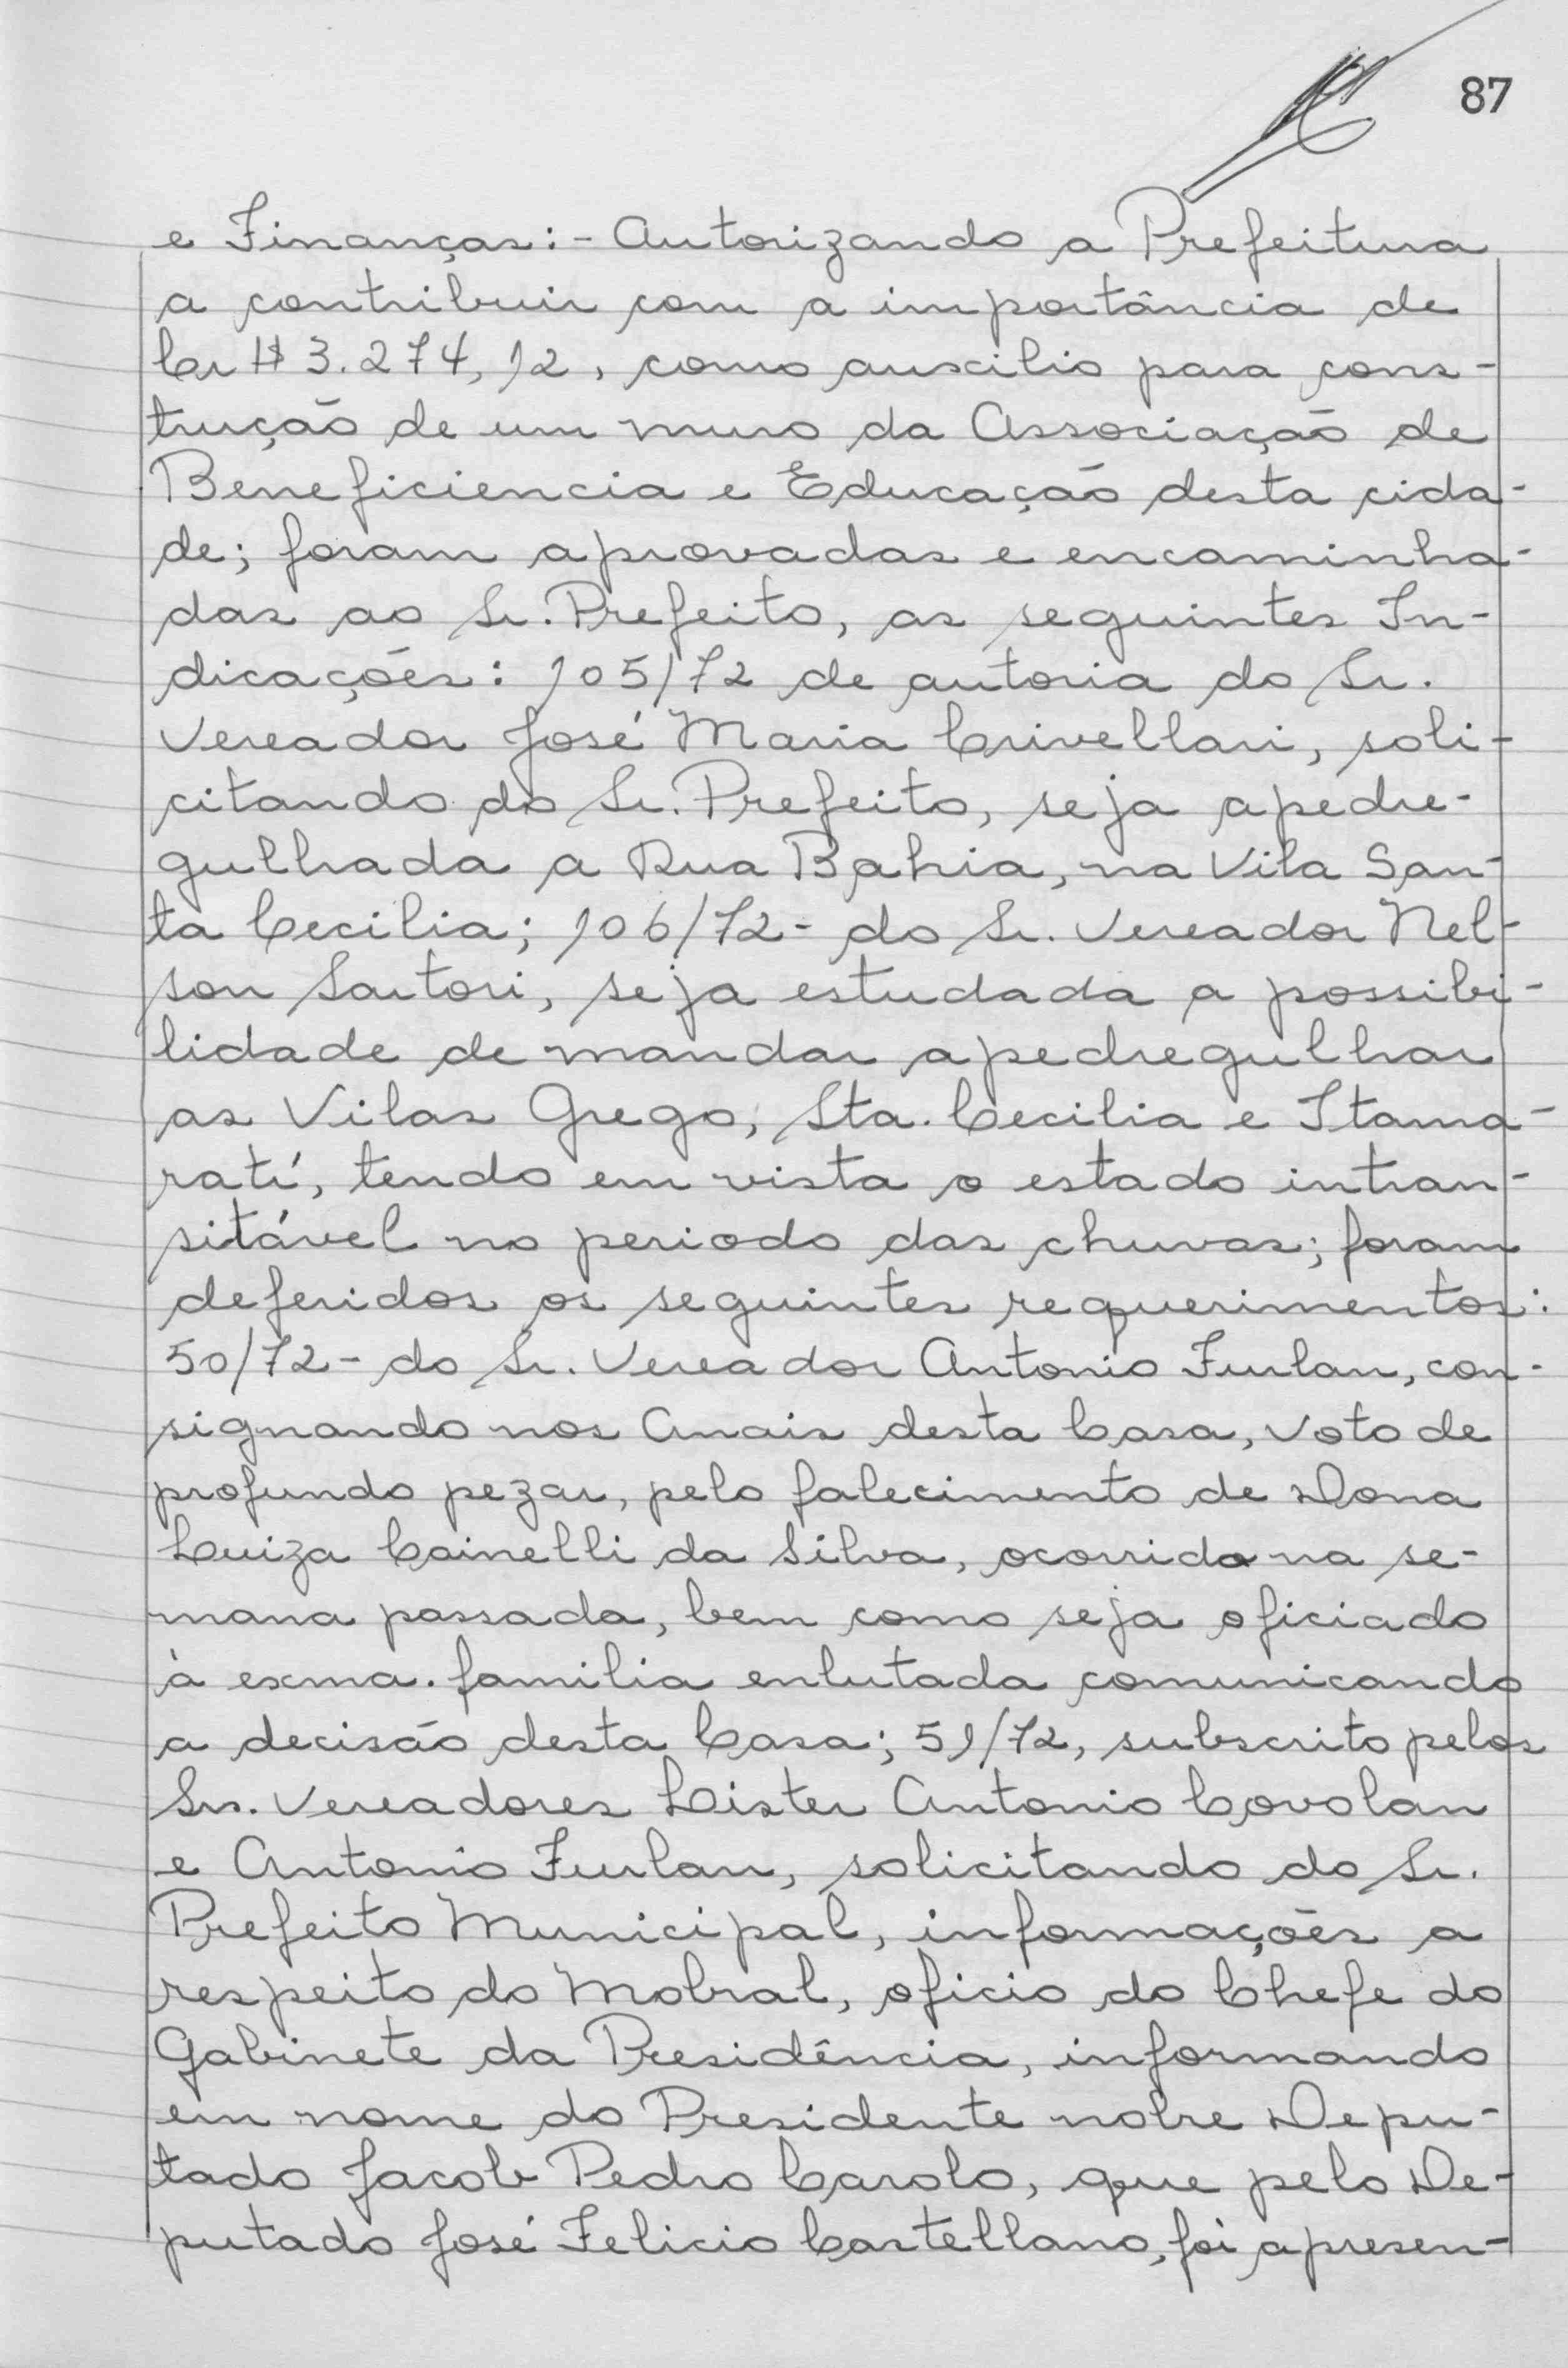 87
e Finanças:- Autorizando a Prefeitura
a contribuir com a importância de
Cr$ 3.274,12, como auscilio para cons-
trução de um muro da Associação de
Beneficiencia e Educação desta cida-
de; foram aprovadas e encaminha-
das ao Sr. Prefeito, as seguintes In-
dicações: 105/72 de autoria do Sr.
Vereador José Maria Crivellari, soli-
citando do Sr. Prefeito, seja apedre-
gulhada a Rua Bahia, na Vila San-
ta Cecilia; 106/72- do Sr. Vereador Nel-
son Sartori, seja estudada a possibi-
lidade de mandar apedregulhar
as Vilas Grego, Sta. Cecilia e Itama-
ratí, tendo em vista o estado intran-
sitável no periodo das chuvas; foram
deferidos os seguintes requerimentos:
50/72- do Sr. Vereador Antonio Furlan, con-
signando nos Anais desta Casa, voto de
profundo pezar, pelo falecimento de Dona
Luiza Cainelli da Silva, ocorrido na se-
mana passada, bem como seja oficiado
à exma. familia enlutada comunicando
a decisão desta Casa; 51/72, subscrito pelos
Srs. Vereadores Lister Antonio Covolan
e Antonio Furlan, solicitando do Sr.
Prefeito Municipal, informações a
respeito do Mobral, oficio do Chefe do
Gabinete da Presidência, informando
em nome do Presidente nobre Depu-
tado Jacob Pedro Carolo, que pelo De-
putado José Felicio Castellano, foi apresen-